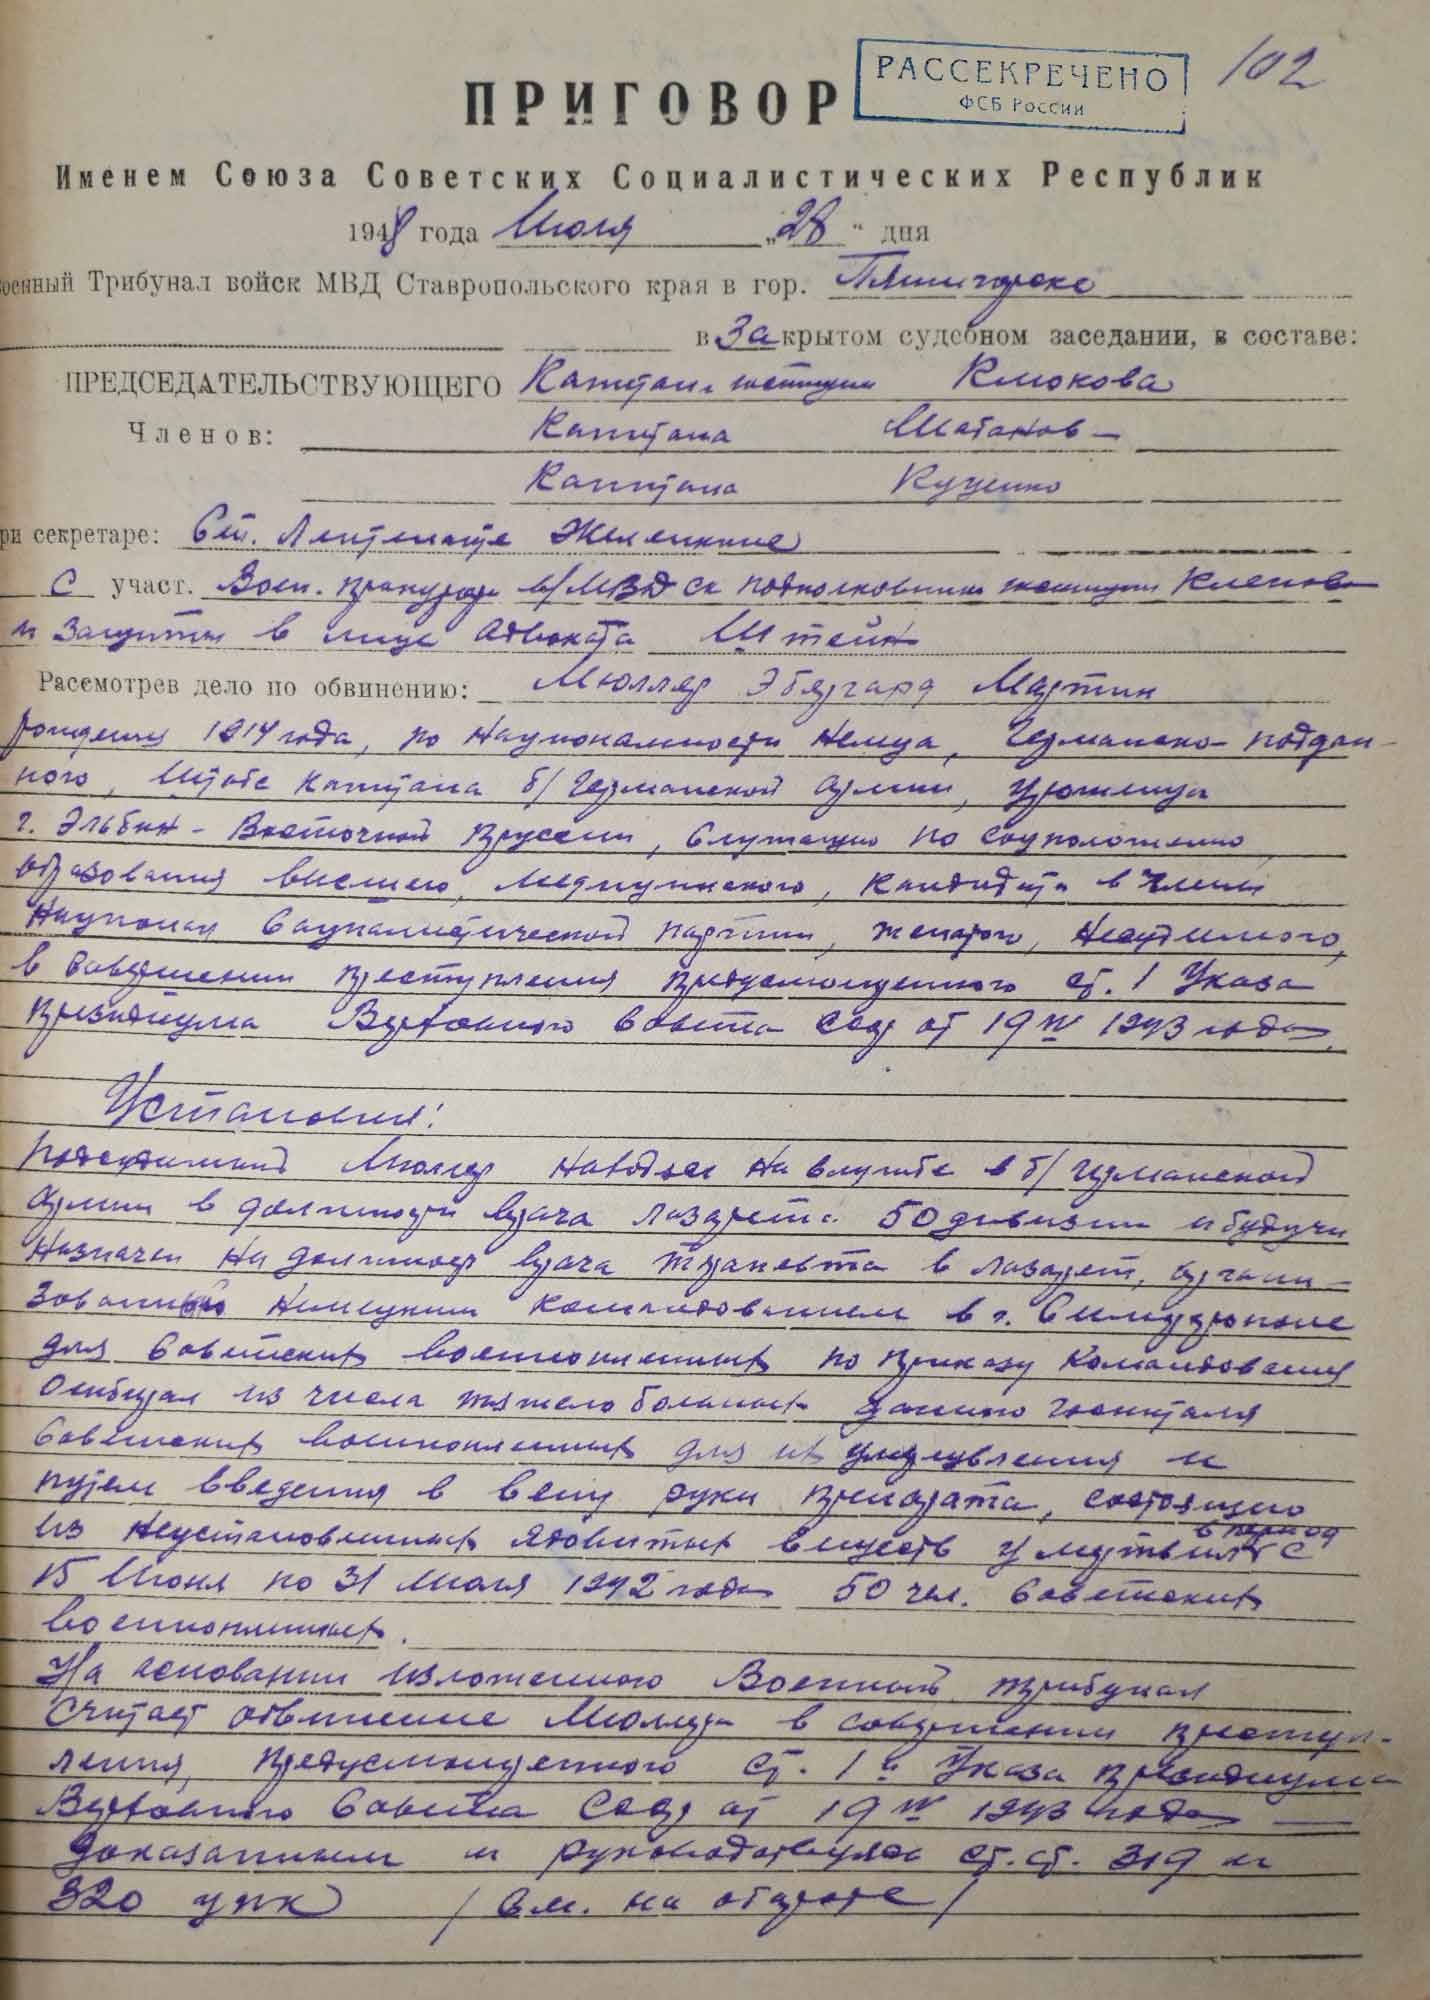 102
РАССЕКРЕЧЕНО
ФСБ РОССИИ
ПРИГОВОР
Именем Союза Советских Социалистических Республик
1948 года Июля „28" дня
военный Трибунал войск МВД Ставропольского края в гор. Пятигорске
в Закрытом судебном заседании, в составе:
ПРЕДСЕДАТЕЛЬСТВУЮЩЕГО Капитан юстиции Клюкова
Членов: Капитана
Капитана Куценко
ри секретаре: Ст. Лейтенанте
С участ. Воен. прокурора в/МВД СК подполковника юстиции
и Защиты в лице адвоката Штейн
Рассмотрев дело по обвинению: Мюллер Эбергард Мартин
рождения 1914 года, по национальности немца, Германско-поддан-
ного, Штабс капитана б/Германской армии, уроженца
г. Эльбин - Восточной Пруссии, служащего по соцположению,
образования высшего, медицинского, кандидата в члены
Национал Социалистической партии, женатого, несудимого,
в совершении преступления предусмотренного ст. 1 Указа
Президиума Верховного Совета СССР от 19 IV 1943 года,
Установил:
Подсудимый Мюллер находясь на службе в б/германской
армии в должности врача лазарета 50 дивизии и будучи
назначен на должность врача терапевта в лазарет, органи-
зованный Немецким командованием в г. Симферополе
для Советских военнопленных по приказу командования
отбирал из числа тяжело больных данного госпиталя
Советских военнопленных для их умерщвления и
путем введения в вену руки препарата, состоящего
из неустановленных ядовитых веществ умертвил в период с
15 Июня по 31 Июля 1942 года 50 чел. Советских
военнопленных.
На основании изложенного Военный трибунал
Считает обвинение Мюллера в совершении преступ-
ления, предусмотренного ст. 1 й Указа Президиума
Верховного Совета СССР от 19 IV 1943 года
доказанным и руководствуясь ст.ст. 319 и
320 УПК /См. на обороте/